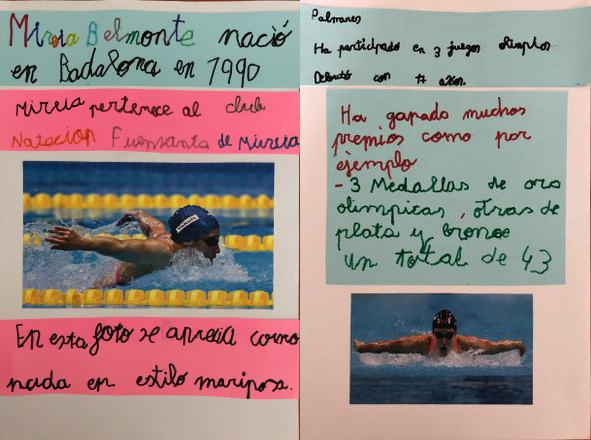 Mireia Belmonte nació
en Badalona en 1990
Mireia pertenece al club
Natacion Fuensanta de Murcia
En esta foto se aprecia como
nada en estilo mariposa.
Palmares
Ha participado en 3 juegos olimpicos
Debutó con 17 años.
Ha ganado muchos
premios como por
ejemplo
- 3 Medallas de oro
olimpicas, otras de
plata y bronce
un total de 43